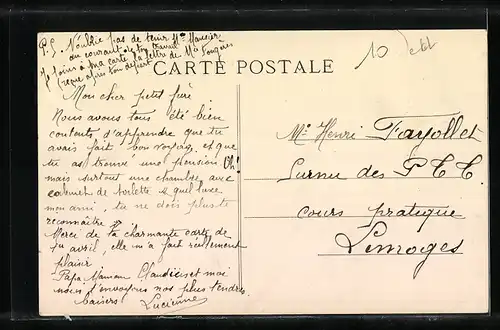 P.S. N'oublie pas de tenir Mr
au courant de ton travail
Je joins à ma carte la lettre de Mr Fougères
reçue après ton départ
10
CARTE POSTALE
Mon cher petit frère
Nous avons tous été bien
contents d'apprendre que tu
avais fait bon voyage, et que
tu as trouvé une pension. Oh!
mais surtout une chambre avec
cabinet de toilette & quel luxe
mon ami, tu ne dois plus te
reconnaître
Merci de ta charmante carte de
1er avril, elle m'a fait réellement
plaisir
Papa Maman Claudius et moi
nous t'envoyons nos plus tendres
baisers Lucienne
Mr Henri Fayollet
Surnu des P T T
cours pratique
Limoges